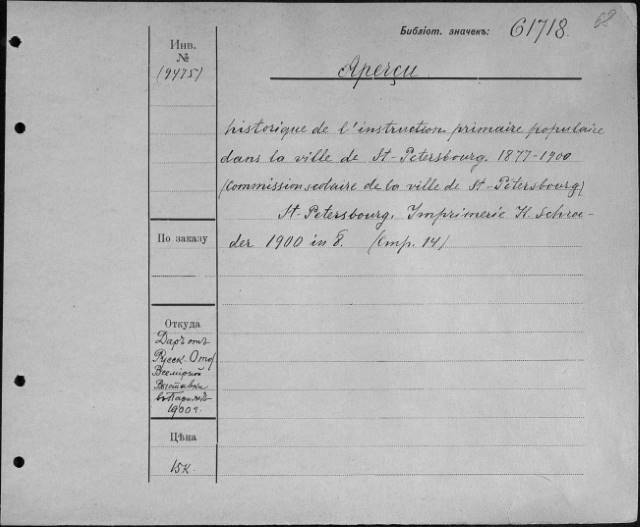 Библіот. значекъ: 61718.
62
Инв.
№
(9475)
Aperçu
historique de l'instruction primaire populaire
dans la ville de St-Petersbourg. 1877-1900
(Commission scolaire de la ville de St-Pétersbourg)
St-Petersbourg. Imprimerie K. Schroe-
der 1900 in 8. (стр. 14)
По заказу
Откуда
Даръ отъ
Русск. Отд.
Всемірной
Выставки
въ Парижѣ
1900 г.
Цѣна
15к.